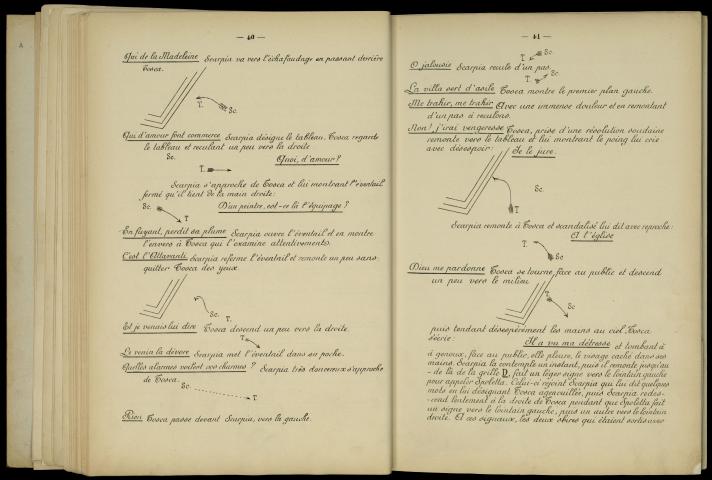 — 40 —
Qui de la Madeleine Scarpia va vers l'échafaudage en passant derrière
Tosca.
T. Sc.
Qui d'amour font commerce Scarpia désigne le tableau. Tosca regarde
le tableau et reculant un peu vers la droite
Sc. Quoi, d'amour?
T.
Scarpia s'approche de Tosca et lui montrant l'éventail
fermé qu'il tient de la main droite:
Sc. D'un peintre, est-ce là l'équipage?
T
En fuyant, perdit sa plume Scarpia ouvre l'éventail et en montre
l'envers à Tosca qui l'examine attentivement.
C'est l'Attavanti Scarpia referme l'éventail et remonte un peu sans
quitter Tosca des yeux.
Sc.
T.
Et je venais lui dire Tosca descend un peu vers la droite.
T.
Le venin la dévore Scarpia met l'éventail dans sa poche.
Quelles alarmes voilent vos charmes? Scarpia très doucereux s'approche
de Tosca.
Sc.
T.
Rien Tosca passe devant Scarpia, vers la gauche.
— 41 —
T. Sc.
O jalousie Scarpia recule d'un pas.
T. Sc.
La villa sert d'asile Tosca montre le premier plan gauche.
Me trahir, me trahir Avec une immense douleur et en remontant
d'un pas à reculons.
Non! j'irai vengeresse Tosca, prise d'une résolution soudaine
remonte vers le tableau et lui montrant le poing lui crie
avec désespoir: Je le jure.
Sc.
T
Scarpia remonte à Tosca et scandalisé lui dit avec reproche:
A l'église
T. Sc.
Dieu me pardonne Tosca se tourne face au public et descend
un peu vers le milieu
T Sc.
puis tendant désespérément les mains au ciel, Tosca
s'écrie: Il a vu ma détresse et tombant à
à genoux, face au public, elle pleure, le visage caché dans ses
mains. Scarpia la contemple un instant, puis il remonte jusqu'au
- de là de la grille D, fait un léger signe vers le lointain gauche
pour appeler Spoletta. Celui-ci rejoint Scarpia qui lui dit quelques
mots en lui désignant Tosca agenouillée, puis Scarpia redes-
-cend lentement à la droite de Tosca pendant que Spoletta fait
un signe vers le lointain gauche, puis un autre vers le lointain
droite. A ces signaux, les deux sbires qui étaient sortis avec